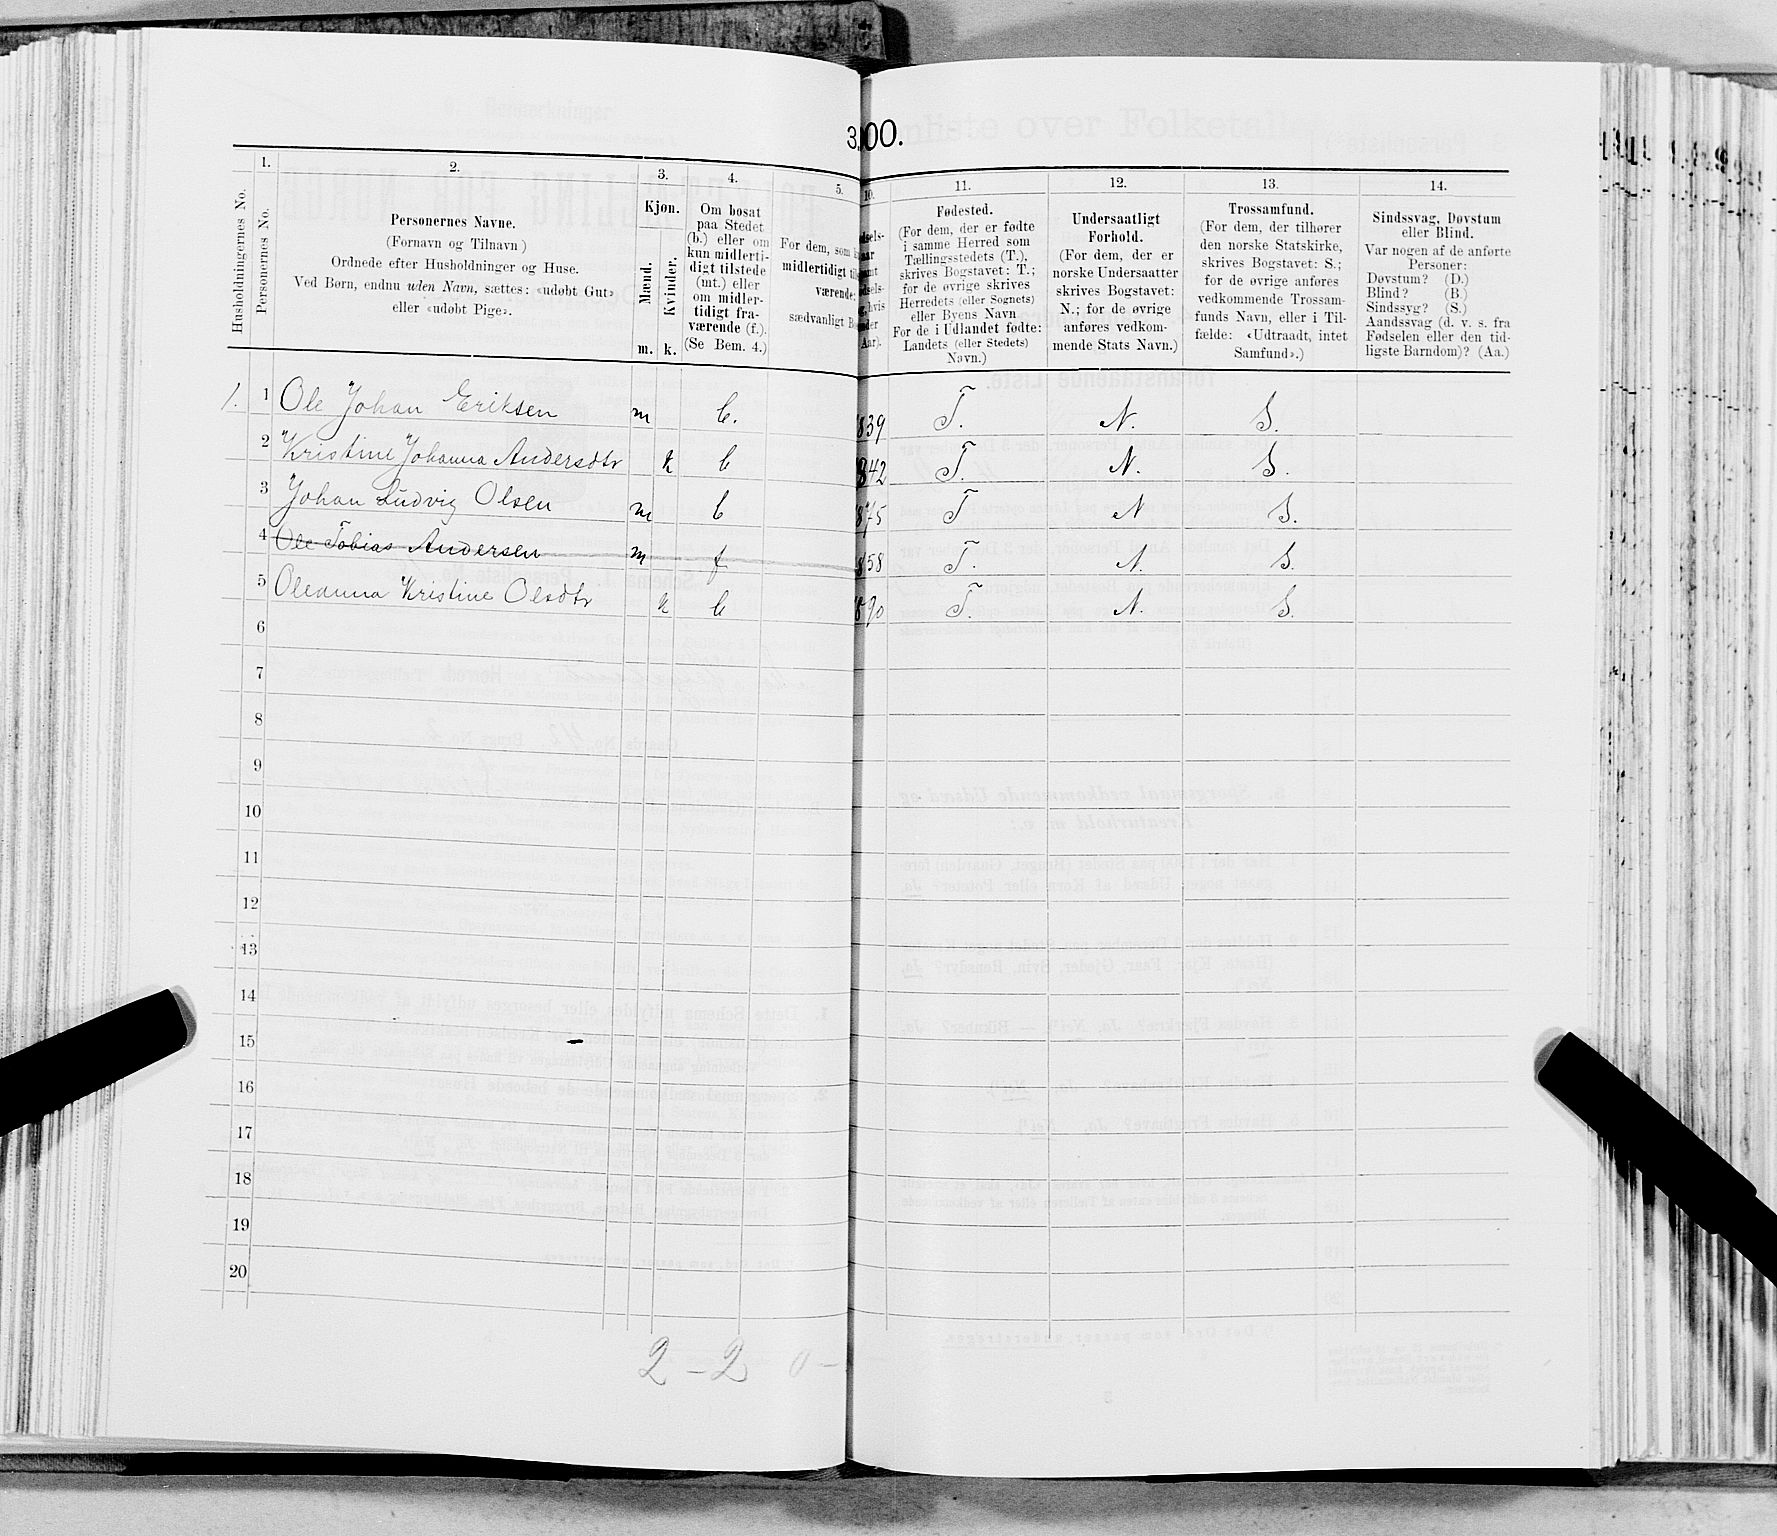 300.
1. 2. 3. 4. 5.
Husholdningernes No.
Personernes No.
Personernes Navne.
(Fornavn og Tilnavn)
Ordnede efter Husholdninger og Huse.
Ved Børn, endnu uden Navn, sættes: «udøbt Gut»
eller «udøbt Pige».
Kjøn.
Mænd.
Kvinder.
m. k.
Om bosat
paa Stedet
(b.) eller om
kun midlerti-
digt tilstede
(mt.) eller
om midler-
tidigt fra-
værende (f.).
(Se Bem. 4.)
For dem, som
midlertidigt
værende:
sædvanligt
10. 11. 12. 13. 14.
Fødested.
(For dem, der er fødte
i samme Herred som
Tællingsstedets (T.),
skrives Bogstavet: T.;
for de øvrige skrives
Herredets (eller Sognets)
eller Byens Navn
For de i Udlandet fødte:
Landets (eller Stedets)
Navn.)
Undersaatligt
Forhold.
(For dem, der er
norske Undersaatter
skrives Bogstavet:
N.; for de øvrige
anføres vedkom-
mende Stats Navn.)
Trossamfund.
(For dem, der tilhører
den norske Statskirke,
skrives Bogstavet: S.;
for de øvrige anføres
vedkommende Trossam-
funds Navn, eller i Til-
fælde: «Udtraadt, intet
Samfund».)
Sindssvag, Døvstum
eller Blind.
Var nogen af de anførte
Personer:
Døvstum? (D.)
Blind? (B.)
Sindssyg? (S.)
Aandssvag (d. v. s. fra
Fødselen eller den tid-
ligste Barndom)? (Aa.)
1. 1 Ole Johan Eriksen m b. 1839 T. N. S.
2 Kristine Johanna Andersdtr k b 1842 T. N. S.
3 Johan Ludvig Olsen m b 1875 T N S.
4 Ole Tobias Andersen m f 1858 T. N. S.
5 Oleanna Kristine Olsdtr k b 1890 T. N. S.
6
7
8
9
10
11
12
13
14
15
16
17
18
19
20
2 - 2 0 -